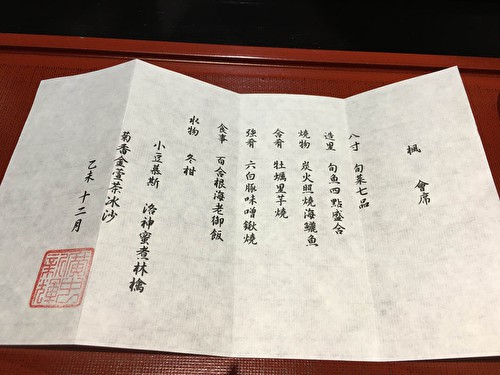 楓 會席
八寸 旬菜七品
造里 旬魚四點盛合
燒物 炭火照燒海鱺魚
合肴 牡蠣里芋燒
強肴 六白豚味噌鍬燒
食事 百合根海老御飯
水物 冬柑
小豆慕斯 洛神蜜煮林檎
菊香金萱茶冰沙
乙未 十二月